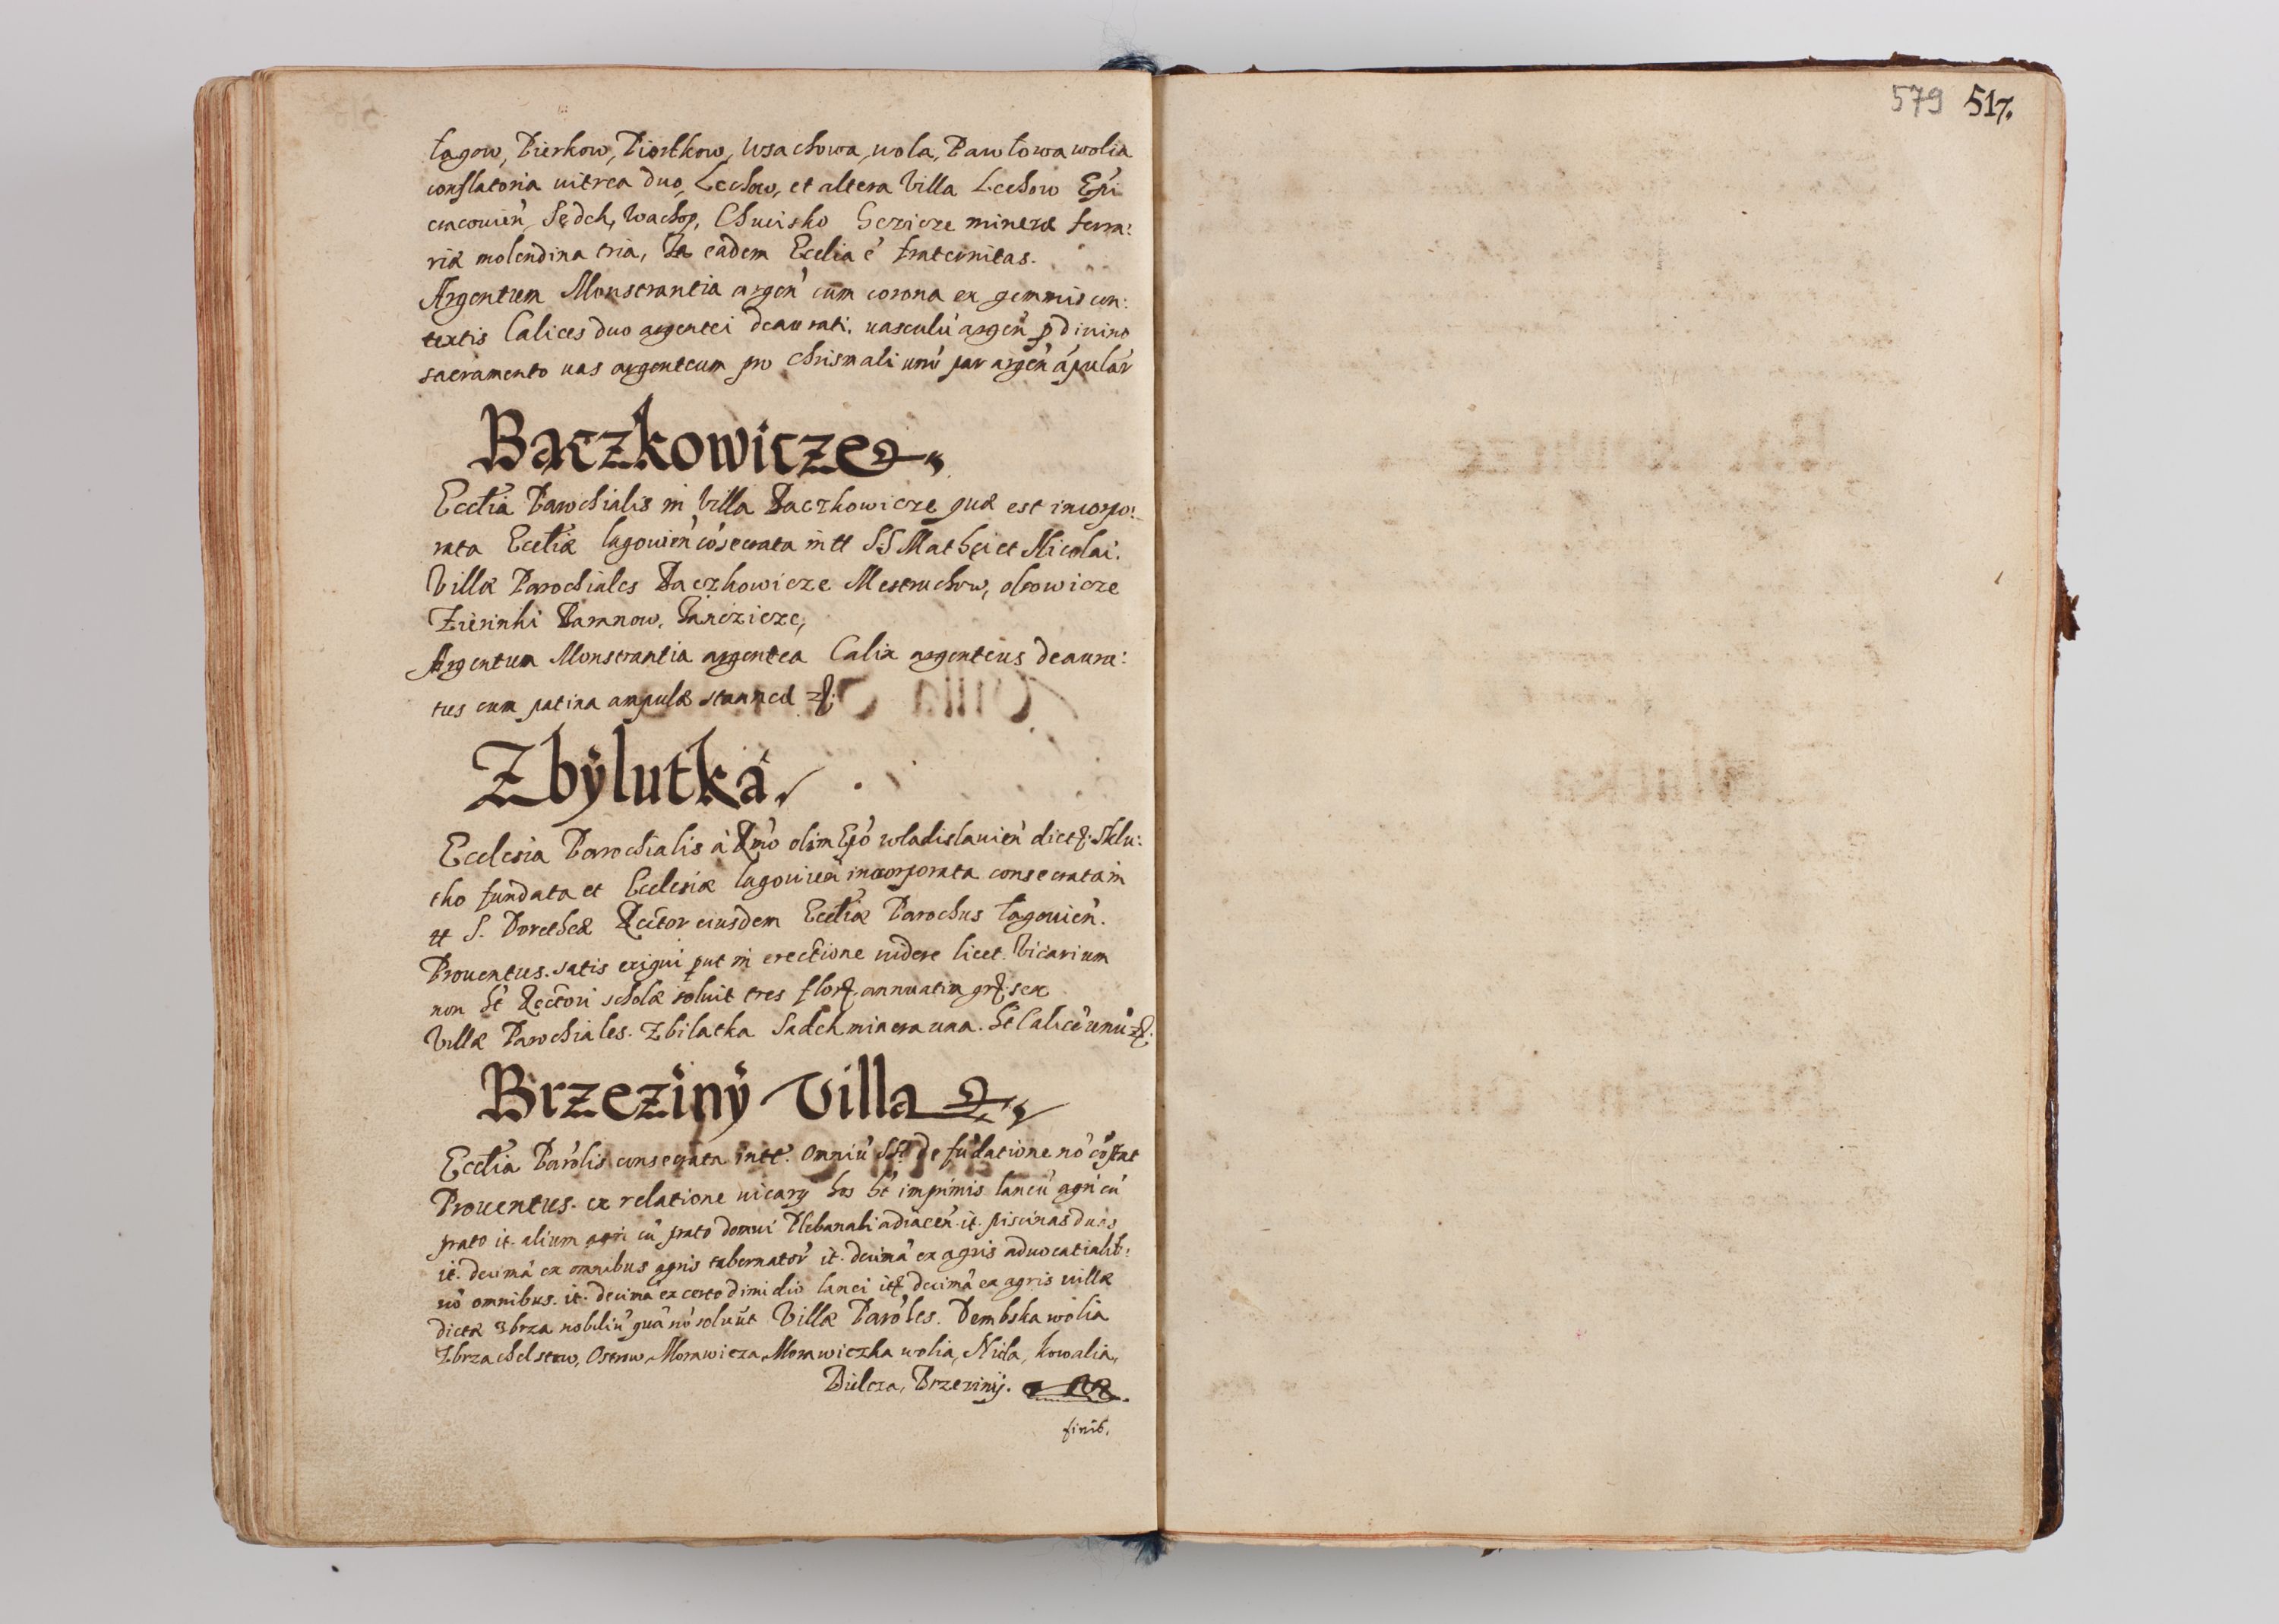 Łagow, Pierkow, Piorkow, Wsachowa wola, Pawłowa wolia
conflatoria uitrea duo, Lechow, et altera Villa Lechow Epi
cracouien̄, Sędch, Wachop, Chucisko Gczicze mineræ ferra:
riæ molendina tria, In eadem Ecclia é fraternitas.
Argentum Monstrantia argen̄ cum corona ex gemmis con:
textis Calices duo argentei deaurati. uasculū argen̄ p diuino
sacramento uas argenteum pro Chrismali unū par argen̄ apular̄
Baczkowicze
Ecclia Parochialis in Villa Baczkowicze quæ est incorpo:
rata Eccliæ lagouien̄ cōsecrata in tt SS Mathei et Nicolai.
Villæ Parochiales Baczkowicze Mestruchow, olrowicze
Zierinki Baranow, Janczicze,
Argentum Monstrantia argentea Calix argenteus deaura:
tus cum patina ampulæ stanneæ
Zbÿlutka
Ecclesia Parochialis à Rmō olim Epō wladislauien̄ dict Sklu:
tko fundata et Ecclesiæ lagouien̄ incorporata consecrata in
tt S. Dorotheæ Rector eiusdem Eccliæ Parochus Łagouien̄.
Prouentus. satis exigui put in erectione uidere licet. Vicarium
non ht̄ Rectori scholæ soluit tres flor annuatim gr sex
Villæ Parochiales. Zbilatka Sadch minera una. ht̄ Calicē unū
Brzezinÿ Villa
Ecclia Parōlis consecrata in tt. Omniū SS. De fūdatione nō cōstat
Prouentus. ex relatione uicarij hos ht̄ imprimis laneū agri cū
prato it. alium agri cū prato domui Plebanali adiacen̄. it. piscinas duas
it. decimā ex omnibus agris tabernator̄ it. decimā ex agris aduocatialib:
nō omnibus. it. decima ex certo dimidio lanei it decimā ex agris uillæ
dictæ Zbrza nobiliū quā nō soluūt Villæ Parōles. Dembska wolia
Zbrza chelstow, Ostrow, Morawicza, Morawiczka wolia, Nida, kowalia,
Bilcza, Brzezinij.
finis.
579 517.